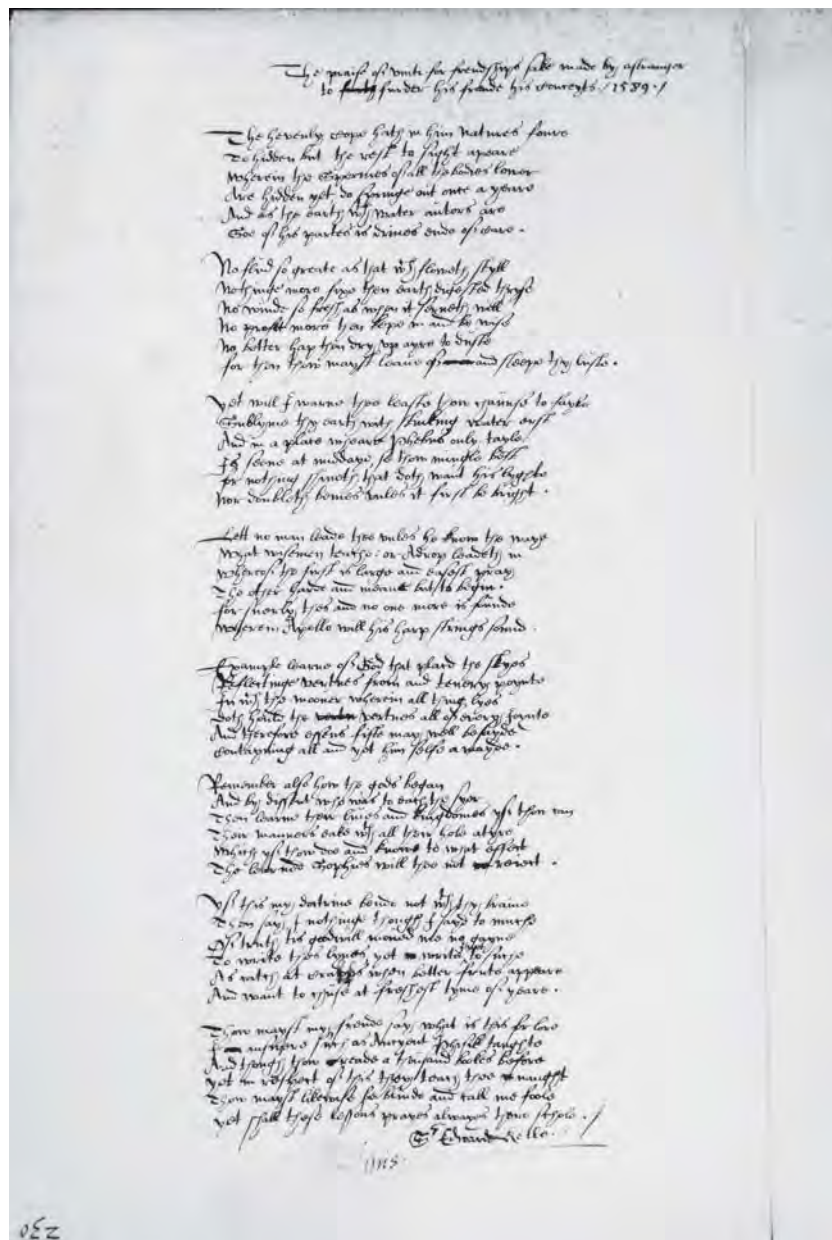 The praise of vnite for frendships sake made by a stranger
to furder his frende his conceyts / 1589 . /
The hevenly cope hath in him natures fowre
To hidden but the rest to sight apeare
wherein the Spermes of all the bodies lower
Are hidden yet do springe out once a yeare
And as the earth wth water autors are
Soe of his partes is drines ende of care .
No flud so greate as that wch floweth styll
Nothinge more fixe then earth digested thrise
No winde so fresh as when it serveth will
No profit more then kepe in and be wise
No better hap then dry vp ayre to duste
for then thow mayst leave of and sleepe thy luste .
Yet will I warne thee leaste thow chaunse to fayle
Sublyme thy earth with stinking water erst
And in a place wheare Phebus only tayle
Is seene at midday, se thow mingle best
For nothing shineth that doth want his lighte
Nor doubleth bemes vnles it first be bright .
Lett no man leade thee vnles he know the waye
What wisemen teache : or Adrop leadeth in
whereof the first is large and easest pray
The other harde and meane but to begin .
for suerly thes and no one more is funde
wherein Apollo will his harp strings sound .
Example learne of God that plast the skyes
Reflectinge vertues from and t every poynte
In wch the mooner wherein all thing lyes
doth houlde the vertues all of every Joynte
And therefore essens fifte may well be sayde
conteyning all and yet him selfe a mayde .
Remember also how the gods began
And by discent who was to each the syer
Then learne their lives and kingdomes yf thow can
Their manners eake wth all their hole atyre
Which yf thow doe and knowe to what effect
The learned Sophies will thee not reiect .
Yf this my doctrine bende not wth thy braine
Then say I nothinge though I sayd to muche
Of truth tis goodwill moved me no gayne
To write thes lynes, yet write to suche
As catch at crabbs when better frute appeare
And want to chuse at freshest tyme of yeare .
Thow mayst my frende say, what is this for lore
I answere such as Auncyent Phisick taughte
And though thow reade a thousand bookes before
yet in respect of this they teach thee naught
Thow mayst likewise be blinde and call me foole
yet shall these lessons prayes alwayes there schole . /
Sr Edward Kelle .
230